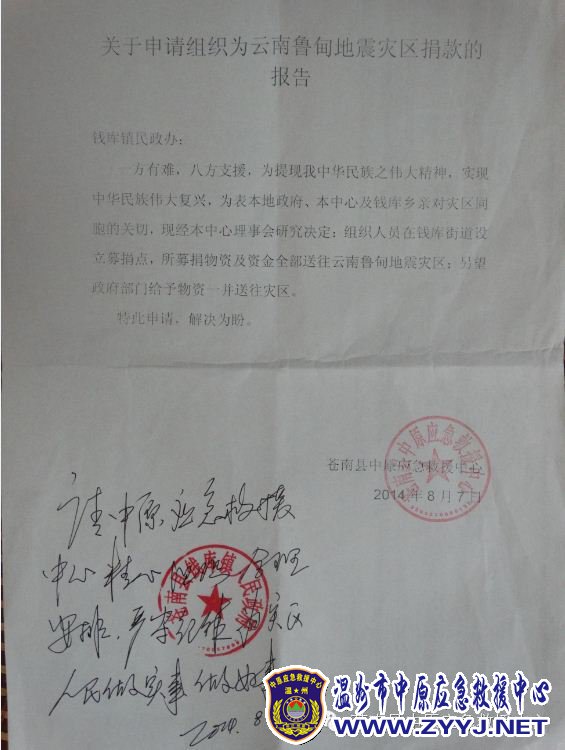 关于申请组织为云南鲁甸地震灾区捐款的
报告
钱库镇民政办:
一方有难，八方支援，为提现我中华民族之伟大精神，实现
中华民族伟大复兴，为表本地政府、本中心及钱库乡亲对灾区同
胞的关切，现经本中心理事会研究决定：组织人员在钱库街道设
立募捐点，所募捐物资及资金全部送往云南鲁甸地震灾区；另望
政府部门给予物资一并送往灾区。
特此申请，解决为盼。
苍南县中原应急救援中心
2014年8月7日
苍南县中原应急救援中心
请中原应急救援
中心精心 合理
安排，严肃纪律 为灾区
人民做实事 做好事
2014. 8
苍南县钱库镇人民政府
中原应急救援中心
温 州
温州市中原应急救援中心
WWW.ZYYJ.NET